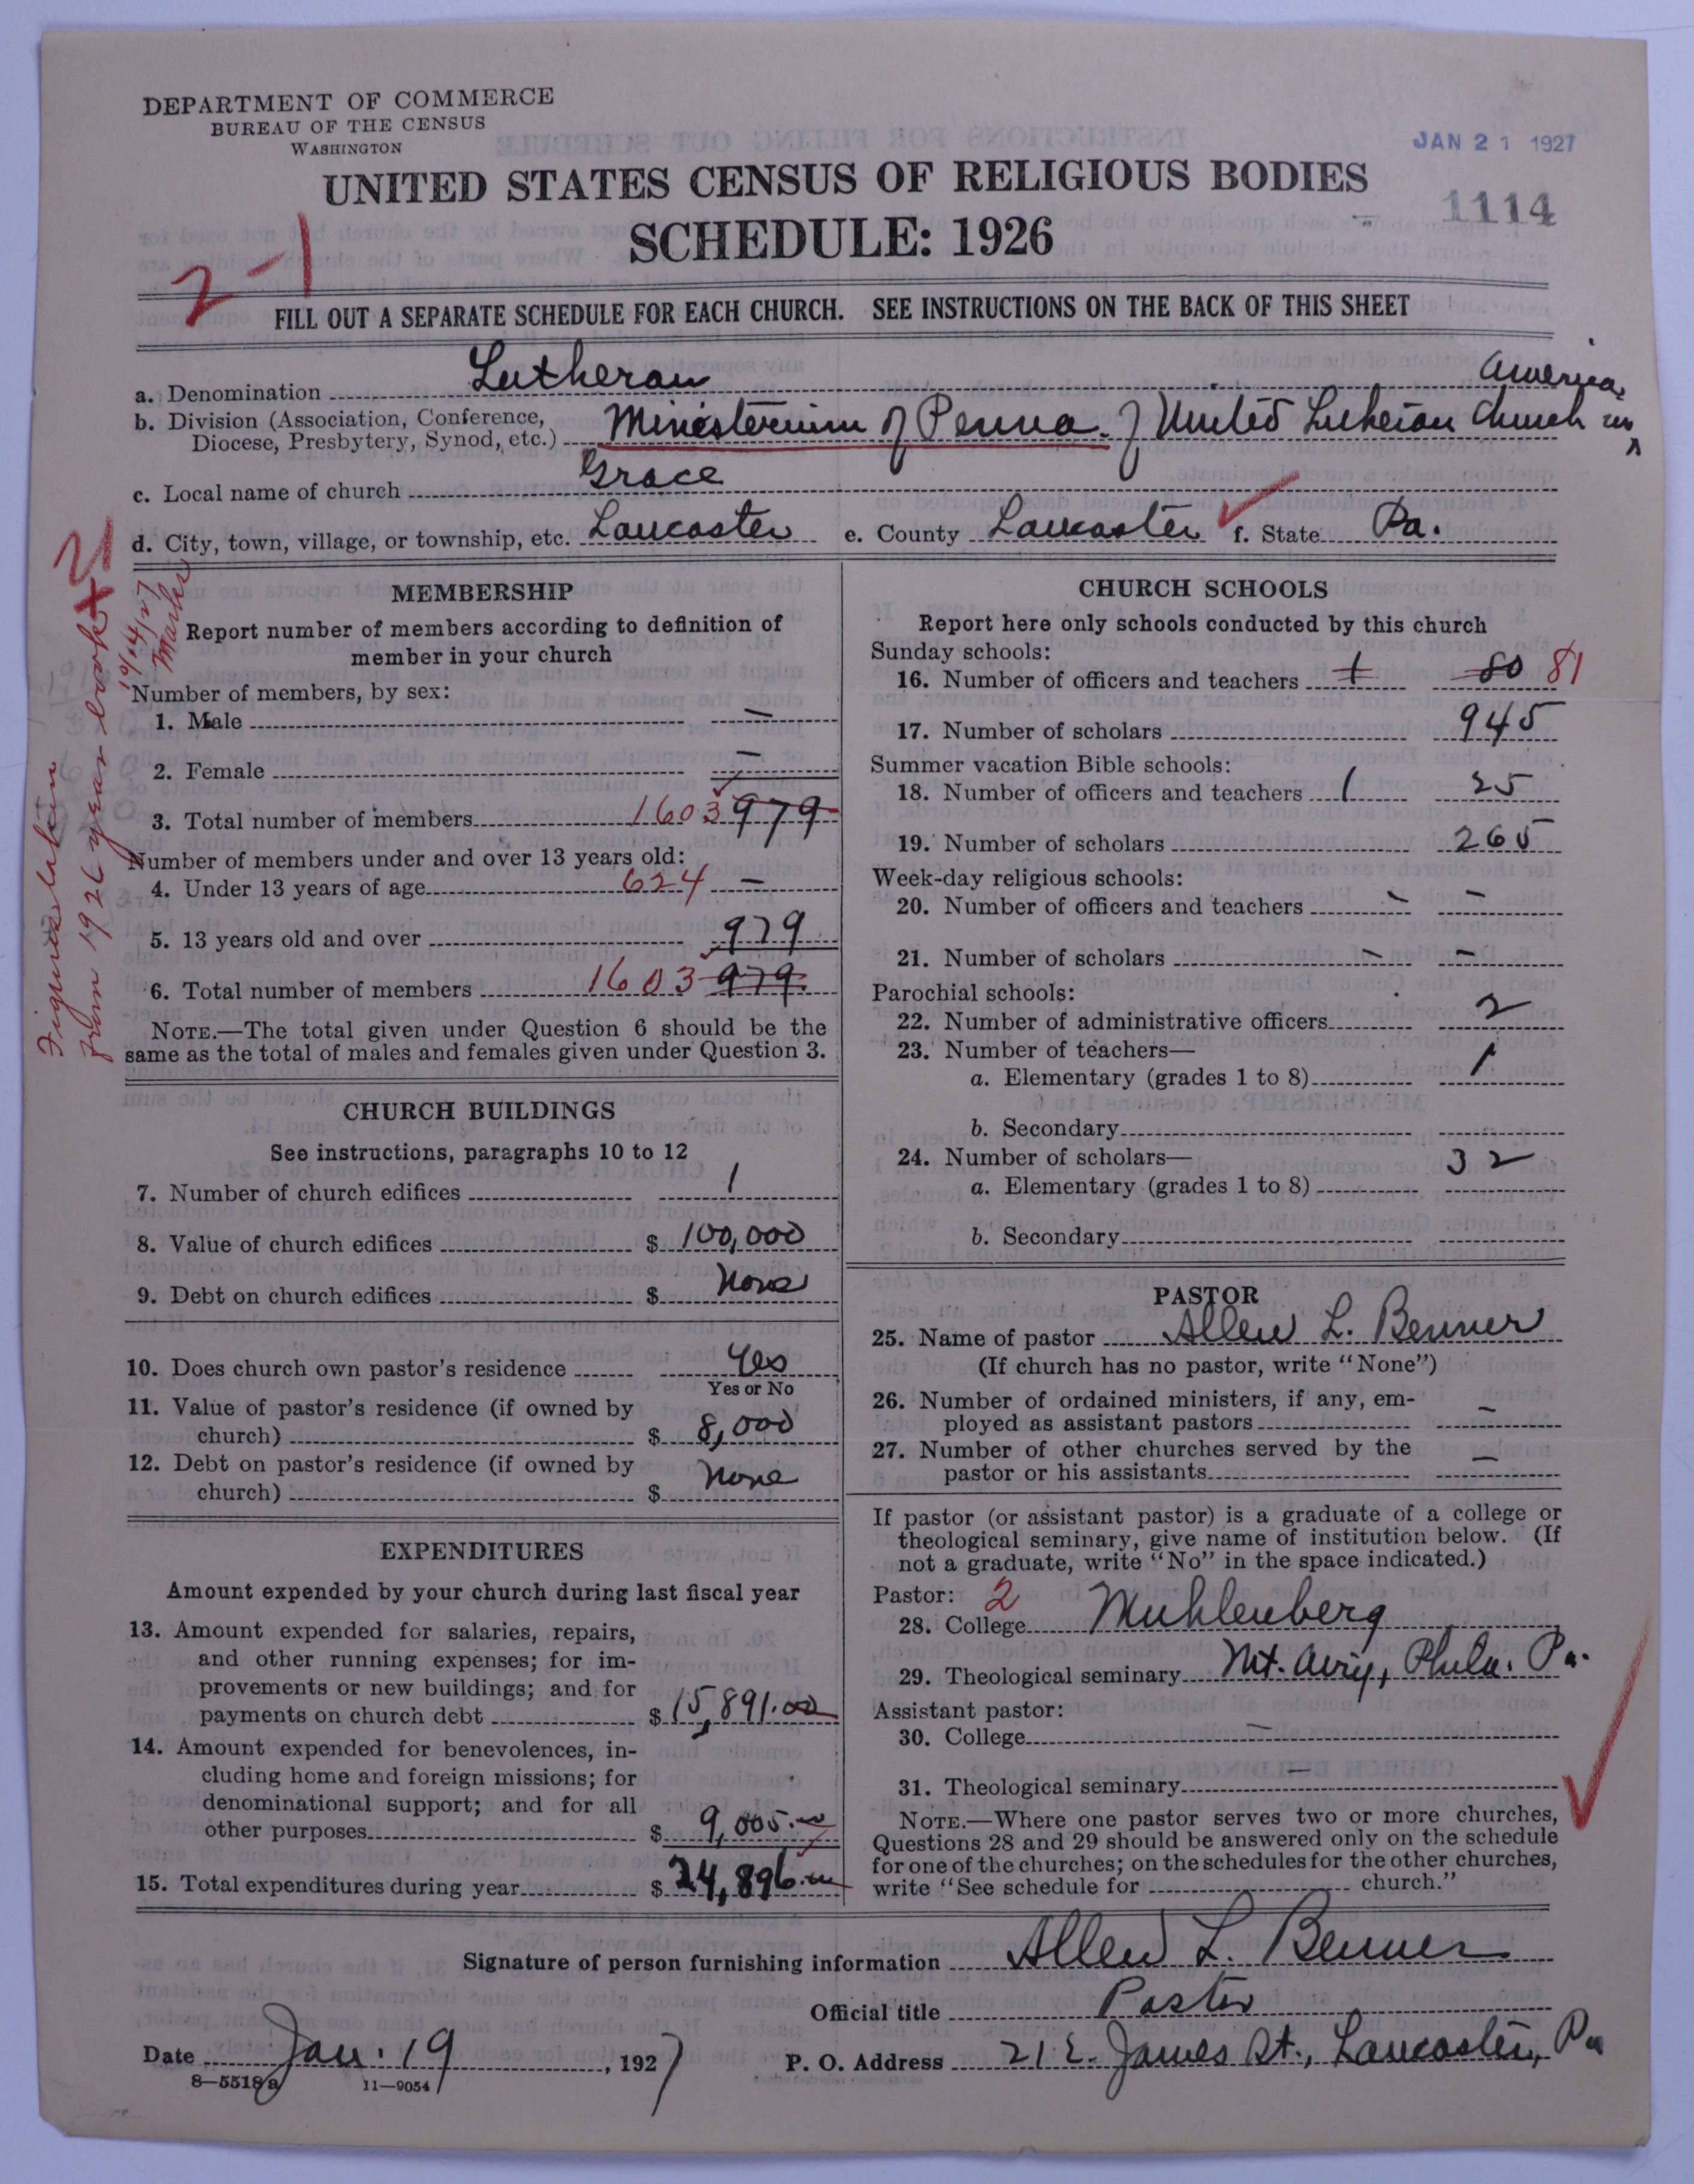 DEPARTMENT OF COMMERCE
BUREAU OF THE CENSUS
WASHINGTON
JAN 21 1927
UNITED STATES CENSUS OF RELIGIOUS BODIES
1114
SCHEDULE: 1926
2-1
FILL OUT A SEPARATE SCHEDULE FOR EACH CHURCH. SEE INSTRUCTIONS ON THE BACK OF THIS SHEET
a. Denomination Lutheran
b. Division (Association, Conference, Diocese, Presbytery, Synod, etc.) Ministerium of Penna. of United Lutheran Church in America
c. Local name of church Grace
d. City, town, village, or township, etc. Lancaster e. County Lancaster f. State Pa.
Figures taken
from 1926 year book
10/14/27
MEMBERSHIP
Report number of members according to definition of
member in your church
Number of members, by sex:
1. Male –
2. Female –
3. Total number of members 1603 979
Number of members under and over 13 years old:
4. Under 13 years of age 624 –
5. 13 years old and over 979
6. Total number of members 1603 979
NOTE.—The total given under Question 6 should be the
same as the total of males and females given under Question 3.
CHURCH BUILDINGS
See instructions, paragraphs 10 to 12
7. Number of church edifices 1
8. Value of church edifices $ 100,000
9. Debt on church edifices $ None
10. Does church own pastor's residence Yes
Yes or No
11. Value of pastor's residence (if owned by
church) $ 8,000
12. Debt on pastor's residence (if owned by
church) $ None
EXPENDITURES
Amount expended by your church during last fiscal year
13. Amount expended for salaries, repairs,
and other running expenses; for im-
provements or new buildings; and for
payments on church debt $ 15,891.00
14. Amount expended for benevolences, in-
cluding home and foreign missions; for
denominational support; and for all
other purposes $ 9,005.00
15. Total expenditures during year $ 24,896.00
CHURCH SCHOOLS
Report here only schools conducted by this church
Sunday schools:
16. Number of officers and teachers 1 80 81
17. Number of scholars 945
Summer vacation Bible schools:
18. Number of officers and teachers 1 25
19. Number of scholars 265
Week-day religious schools:
20. Number of officers and teachers – –
21. Number of scholars – –
Parochial schools:
22. Number of administrative officers 2
23. Number of teachers—
a. Elementary (grades 1 to 8) 1
b. Secondary
24. Number of scholars— 32
a. Elementary (grades 1 to 8)
b. Secondary
PASTOR
25. Name of pastor Allen L. Benner
(If church has no pastor, write "None")
26. Number of ordained ministers, if any, em-
ployed as assistant pastors –
27. Number of other churches served by the
pastor or his assistants –
If pastor (or assistant pastor) is a graduate of a college or
theological seminary, give name of institution below. (If
not a graduate, write "No" in the space indicated.)
Pastor: 2
28. College Muhlenberg
29. Theological seminary Mt. Airy, Phila. Pa.
Assistant pastor:
30. College –
31. Theological seminary –
NOTE.—Where one pastor serves two or more churches,
Questions 28 and 29 should be answered only on the schedule
for one of the churches; on the schedules for the other churches,
write "See schedule for church."
Signature of person furnishing information Allen L. Benner
Official title Pastor
Date Jan. 19, 1927 P. O. Address 21 E. James St., Lancaster, Pa
8—5518a 11—9054